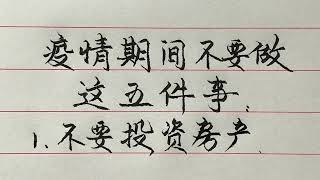 疫情期间不要做
这五件事
1.不要投资房产.